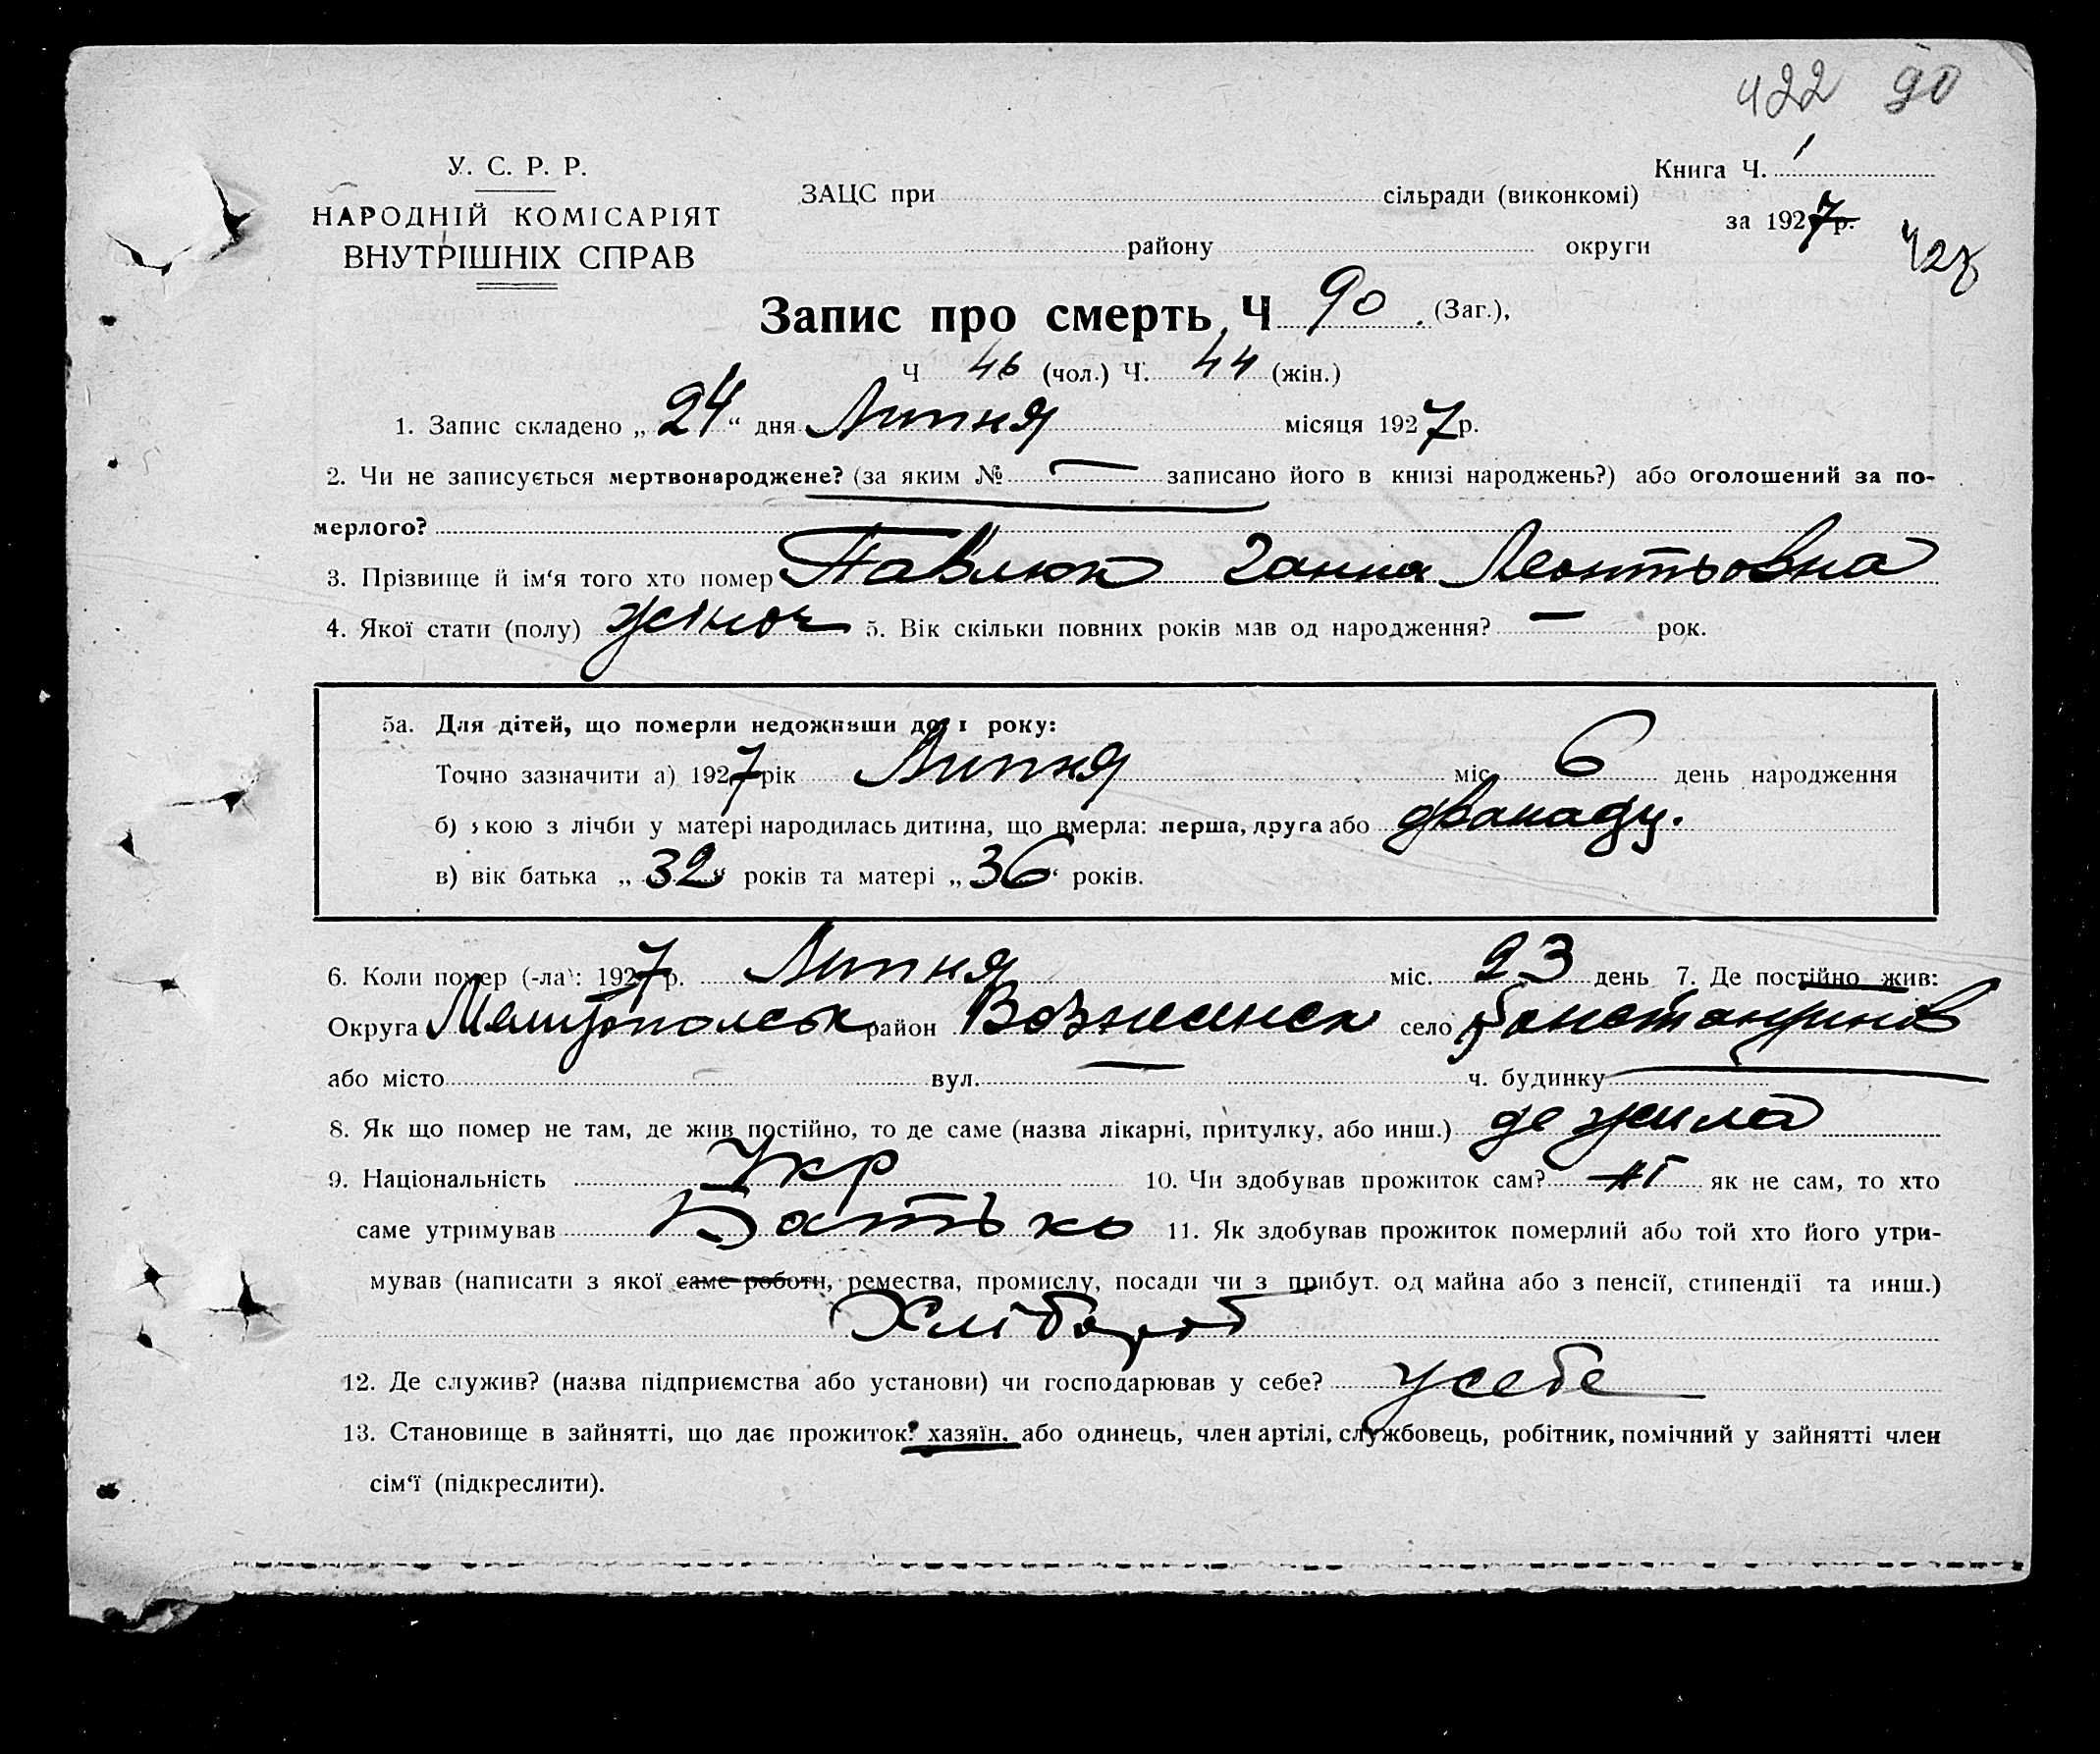 422 90
У. С. Р. Р.
НАРОДНІЙ КОМІСАРІЯТ
ВНУТРІШНІХ СПРАВ
ЗАЦС при сільради (виконкомі)
району округи
Книга Ч. 1
за 1927 р.
Запис про смерть, Ч 90 . (Заг.),
Ч 46 (чол.) Ч. 44 (жін.)
1. Запис складено „ 24 “ дня Липня місяця 1927 р.
2. Чи не записується мертвонароджене? (за яким № — записано його в книзі народжень?) або оголошений за по-
мерлого?
3. Прізвище й ім‘я того хто помер Павлюк Ганна Леонтьовна
4. Якої стати (полу) жіноч 5. Вік скільки повних років мав од народження? — рок.
5а. Для дітей, що померли недоживши до 1 року:
Точно зазначити а) 1927 рік Липня міс. 6 день народження
б) якою з лічби у матері народилась дитина, що вмерла: перша, друга або дванадц.
в) вік батька „ 32 “ років та матері „ 36 “ років.
6. Коли помер (-ла): 1927 р. Липня міс. 23 день 7. Де постійно жив:
Округа Мелітопольск район Вознесенск село Констанцинов
або місто вул. — ч. будинку
8. Як що помер не там, де жив постійно, то де саме (назва лікарні, притулку, або инш.) де жила
9. Національність Укр 10. Чи здобував прожиток сам? ні як не сам, то хто
саме утримував Батько 11. Як здобував прожиток померлий або той хто його утри-
мував (написати з якої саме роботи, ремества, промислу, посади чи з прибут. од майна або з пенсії, стипендії та инш.)
Хлібороб
12. Де служив? (назва підприємства або установи) чи господарював у себе? у себе
13. Становище в зайнятті, що дає прожиток: хазяїн, або одинець, член артілі, службовець, робітник, помічний у зайнятті член
сім‘ї (підкреслити).